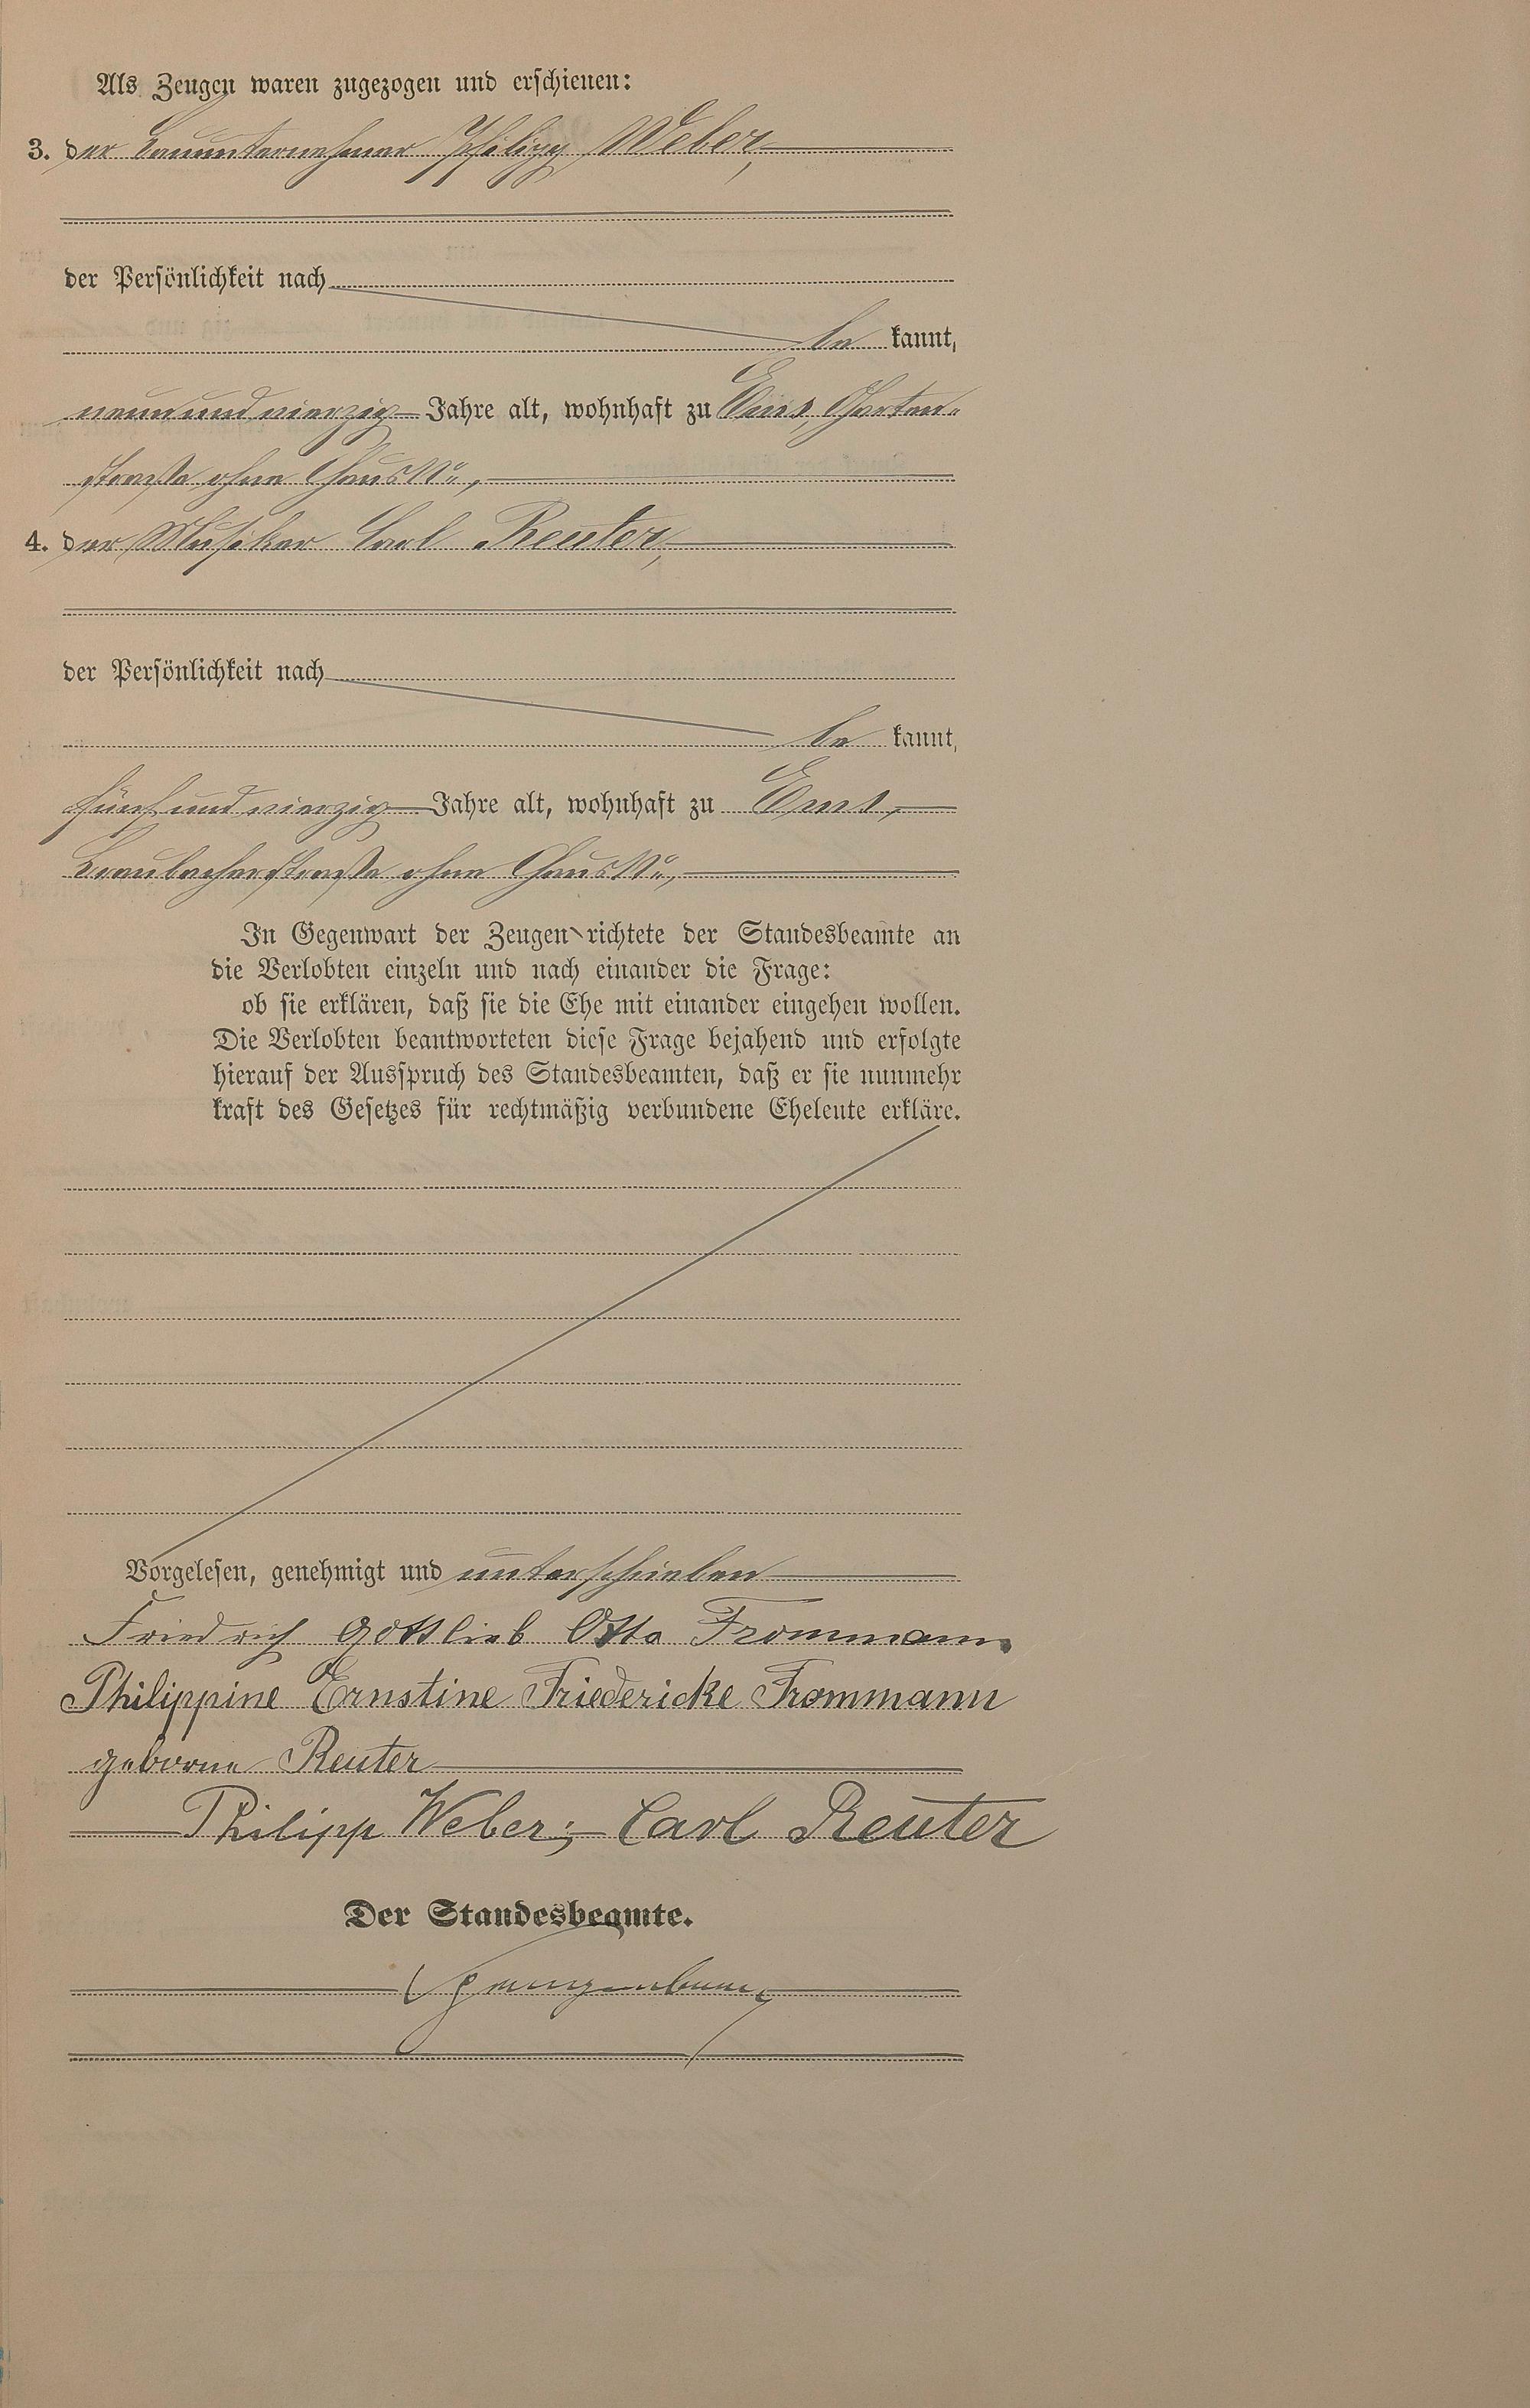 Als Zeugen waren zugezogen und erschienen:
3. der Bauunternehmer Philipp Weber,
der Persönlichkeit nach
be kannt,
neunundvierzig Jahre alt, wohnhaft zu Ems, Garten-
straße ohne Haus No,
4. der Musiker Carl Reuter,
der Persönlichkeit nach
be kannt,
fünfundvierzig Jahre alt, wohnhaft zu Ems,
Braubacherstraße ohne Haus No,
In Gegenwart der Zeugen richtete der Standesbeamte an
die Verlobten einzeln und nach einander die Frage:
ob sie erklären, daß sie die Ehe mit einander eingehen wollen.
Die Verlobten beantworteten diese Frage bejahend und erfolgte
hierauf der Ausspruch des Standesbeamten, daß er sie nunmehr
kraft des Gesetzes für rechtmäßig verbundene Eheleute erkläre.
Vorgelesen, genehmigt und unterschrieben
Friedrich Gottlieb Otto Frommann.
Philippine Ernstine Friedericke Frommann
geborne Reuter
Philipp Weber; Carl Reuter
Der Standesbeamte.